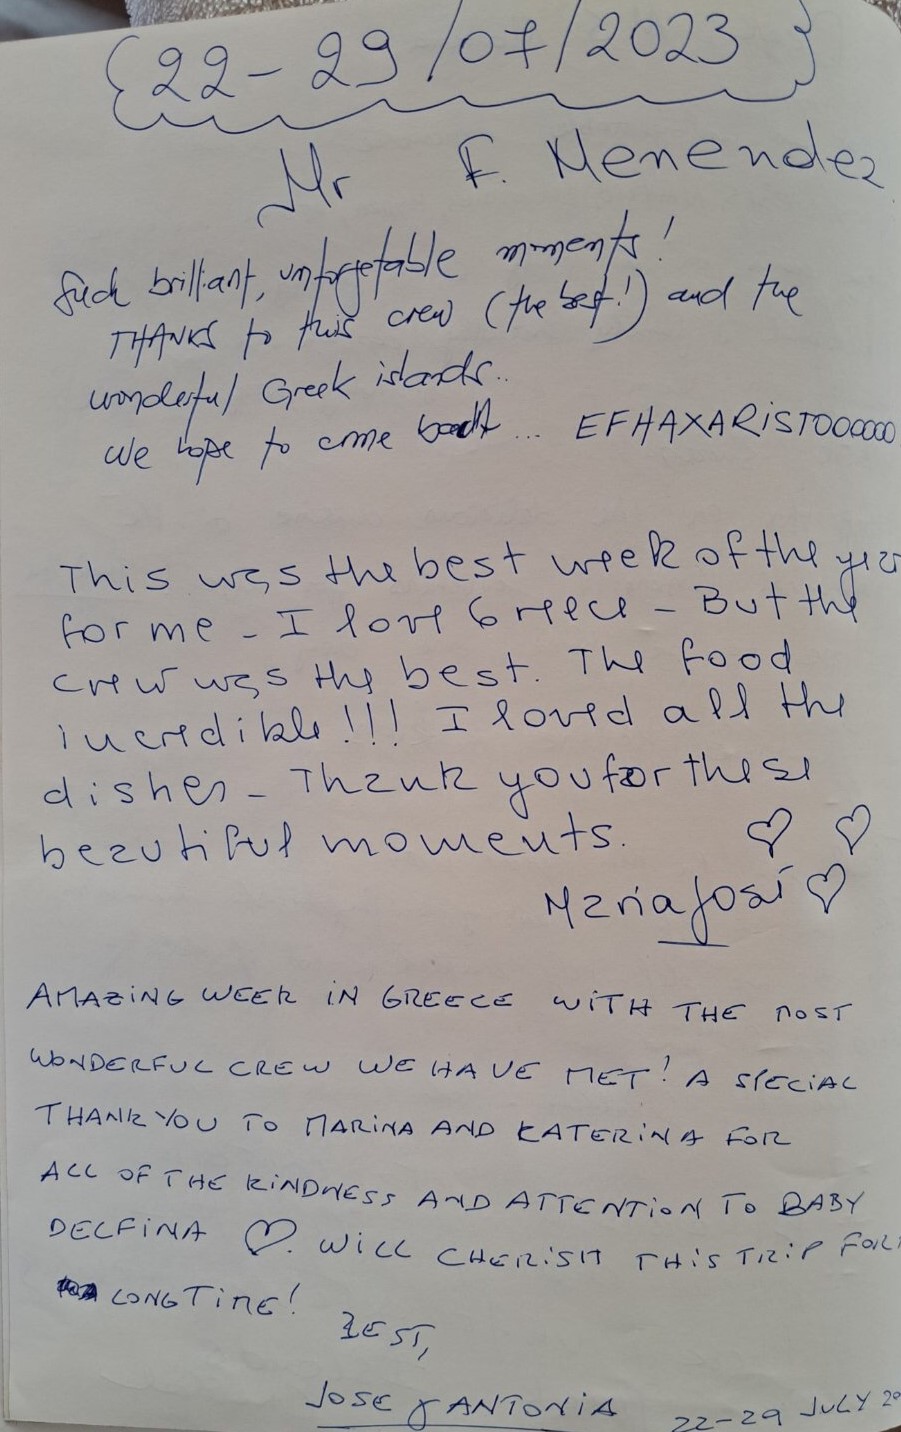 {22-29/07/2023}
Mr F. Menendez
Such brilliant, unforgetable moments!
THANKS to this crew (the best!) and the
wonderful Greek islands..
We hope to come back ... EFHAXARiSTOOOOOO
This was the best week of the year
for me - I love Greece - But the
crew was the best. The food
incredible!!! I loved all the
dishes - Thank you for these
beautiful moments. ♡ ♡
Maria José ♡
AMAZiNG WEEK iN GREECE WiTH THE MOST
WONDERFUL CREW WE HAVE MET! A SPECiAL
THANK YOU TO MARiNA AND KATERiNA FOR
ALL OF THE KiNDNESS AND ATTENTiON TO BABY
DELFiNA ♡. WiLL CHERiSH THiS TRiP FOR
LONG TiME!
BEST,
JOSE y ANTONiA 22-29 JULY 20